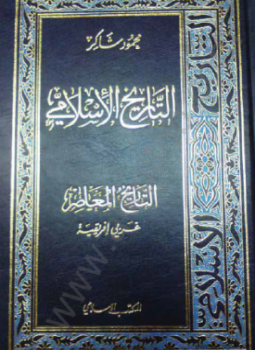 محمود شاكر
التاريخ الإسلامي
التاريخ المعاصر
غربي إفريقية
المكتب الإسلامي
التاريخ الإسلامي
www.